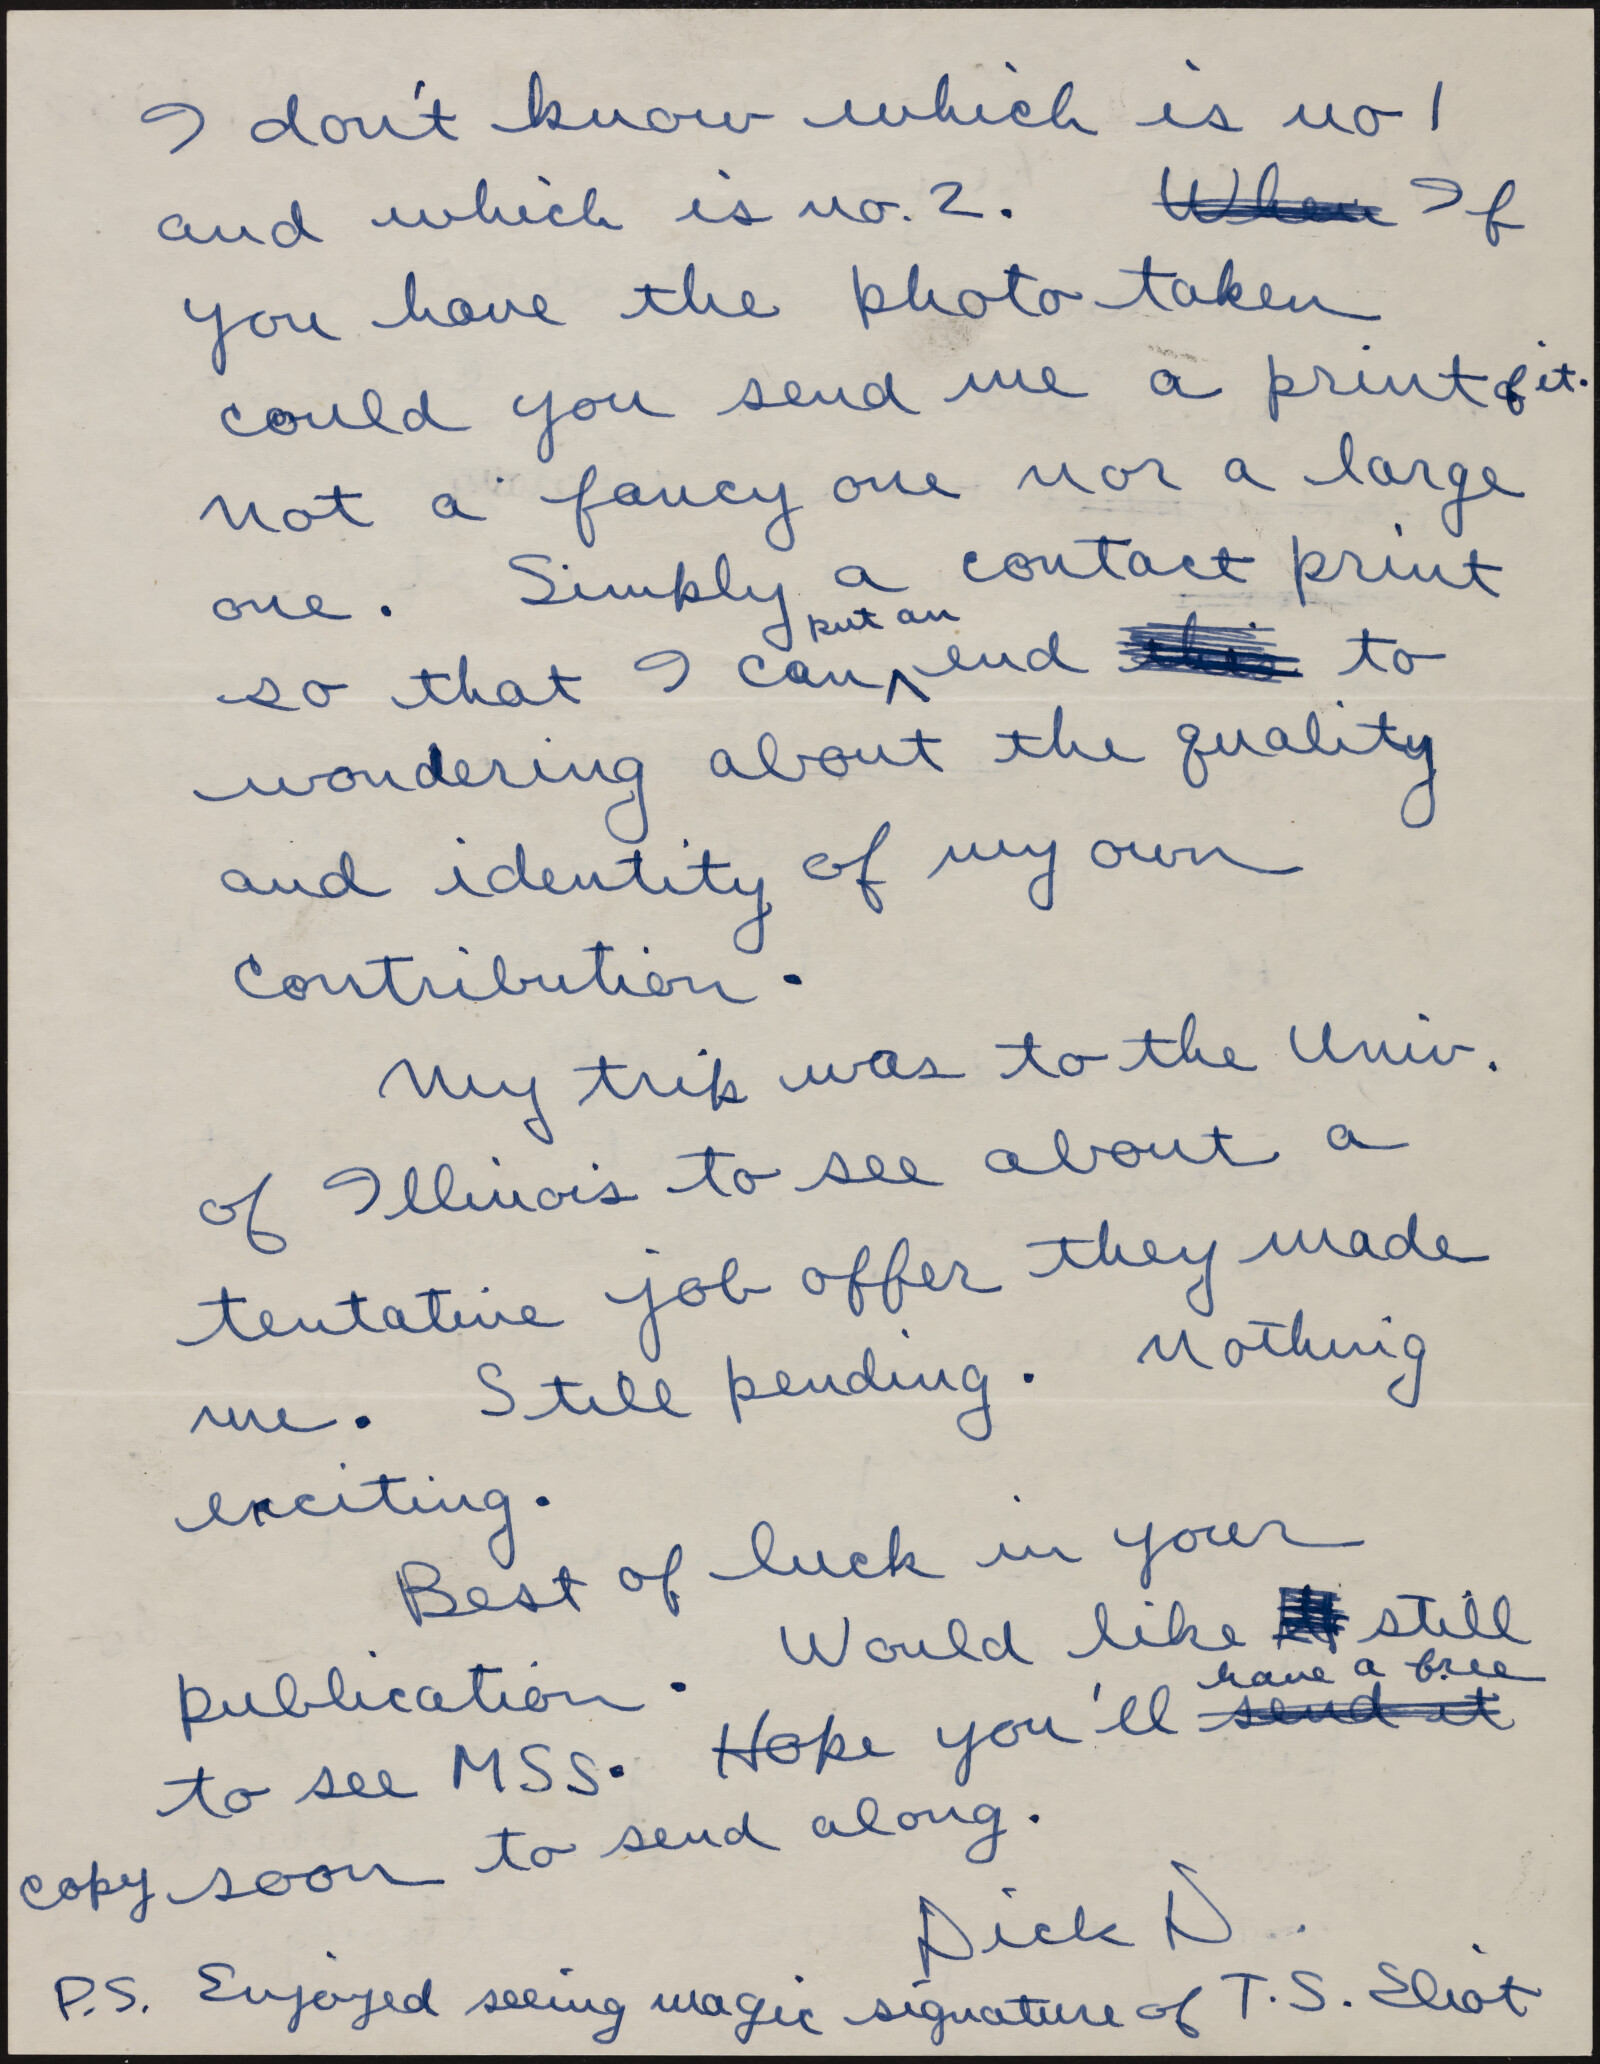 I don't know which is no 1
and which is no. 2. When If
you have the photo taken
could you send me a print of it.
Not a fancy one nor a large
one. Simply a contact print
put an
so that I can ^ end this to
wondering about the quality
and identity of my own
contribution.
My trip was to the Univ.
of Illinois to see about a
tentative job offer they made
me. Still pending. Nothing
exciting.
Best of luck in your
publication. Would like still
have a free
to see MSS. Hope you'll send it
copy soon to send along.
Dick D..
P.S. Enjoyed seeing magic signature of T.S. Eliot